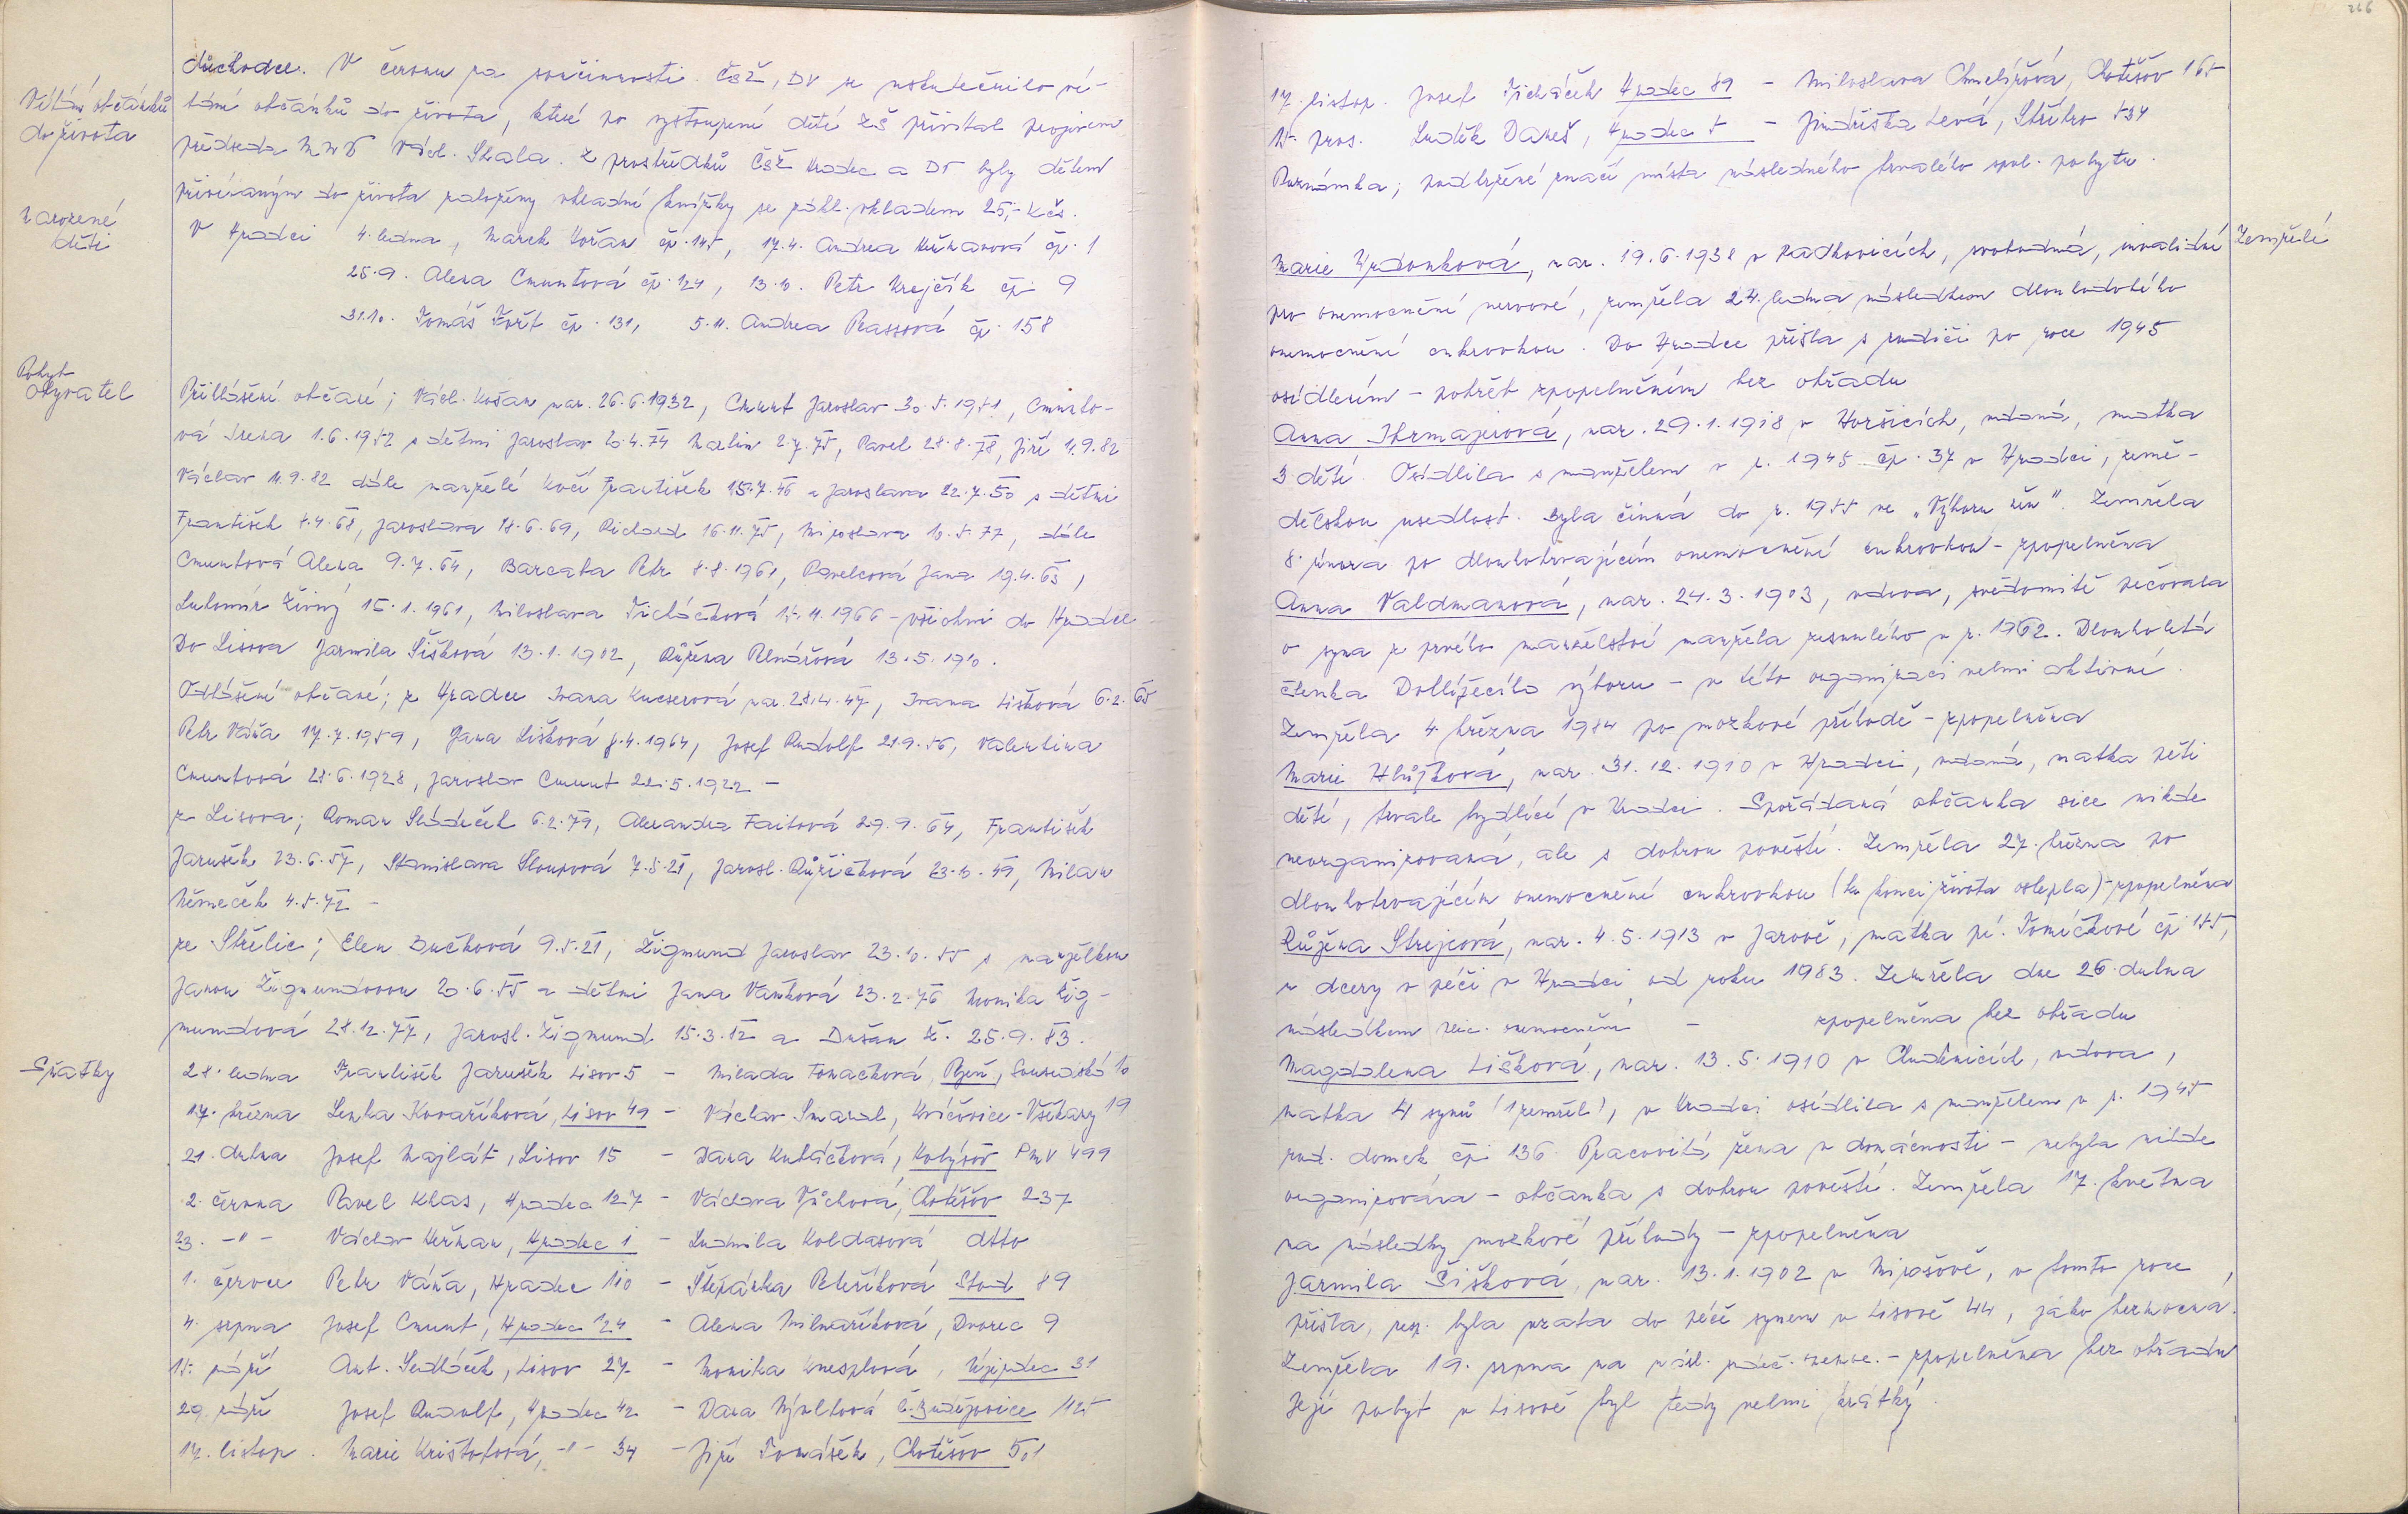 266
důchodce. V červnu za součinnosti ČSŽ, DV se uskutečnilo ví-
Vítání občánků
do života
tání občánků do života, které po vystoupení dětí ZŠ přivítal projevem
předseda MNV Václ. Skala. Z prostředků ČSŽ Hradec a DV byly dětem
přivítaným do života založeny vkladní knížky se zákl. vkladem 25,- Kčs.
Narozené
děti
V Hradci 4. ledna, Marek Kožan čp. 145, 17.4. Andrea Heřmanová čp. 1
25.9. Alena Cmuntová čp. 124, 13.10. Petr Krejčík čp. 9
31.10. Tomáš Fořt čp. 131, 5.11. Andrea Prassová čp. 158
Pobyt
obyvatel
Přihlášení občané; Václ. Kožan nar. 26.6.1932, Cmunt Jaroslav 30.5.1951, Cmunto-
vá Irena 1.6.1952 s dětmi Jaroslav 20.4.74 Martin 2.7.75, Pavel 28.8.78, Jiří 11.9.82
Václav 11.9.82 dále manželé Kočí František 15.7.46 a Jaroslava 22.7.50 s dětmi
František 8.4.68, Jaroslava 18.6.69, Richard 16.11.75, Miroslava 10.5.77, dále
Cmuntová Alena 9.7.64, Barcata Petr 8.8.1961, Pavelcová Jana 19.4.63,
Lubomír Živný 15.1.1961, Miloslava Ticháčková 15.11.1966 - všichni do Hradce
Do Lisova Jarmila Šišková 13.1.1902, Růžena Pelnářová 13.5.1910.
Odhlášení občané; z Hradce Ivana Kucserová nar. 28.4.47, Ivana Lišková 6.2.65
Petr Váňa 17.7.1959, Jana Lišková 8.4.1964, Josef Rudolf 21.9.56, Valentina
Cmuntová 28.6.1928, Jaroslav Cmunt 22.5.1922 -
z Lisova; Roman Sládeček 6.2.79, Alexandra Faitová 29.9.64, František
Jarušek 23.6.57, Stanislava Sloupová 7.5.21, Jarosl. Růžičková 23.10.49, Milan
Němeček 4.5.72 -
ze Střelic; Elen Bučková 9.5.21, Žigmund Jaroslav 23.10.55 s manželkou
Janou Žigmundovou 20.6.55 a dětmi Jana Vaňková 23.2.76 Monika Žig-
mundová 28.12.77, Jarosl. Žigmund 15.3.12 a Dušan Ž. 25.9.83.
Sňatky
28. ledna František Jarušek Lisov 5 - Milada Tomachová, Plzeň, Sousedská 10
17. března Lenka Kovaříková, Lisov 49 - Václav Smaral, Kvíčovice-Všekary 19
21. dubna Josef Majlát, Lisov 15 - Dana Kubáčková, Robýšov PMV 499
2. června Pavel Klas, Hradec 127 - Václava Vůchová, Chotěšov 237
23. -"- Václav Heřman, Hradec 1 - Ludmila Koldasová dtto
1. červce Petr Váňa, Hradec 110 - Štěpánka Peteříková Stod 89
4. srpna Josef Cmunt, Hradec 124 - Alena Milnaříková, Dvorec 9
15. září Ant. Sedláček, Lisov 27 - Monika Kneslová, Újezdec 31
29. září Josef Rudolf, Hradec 42 - Dana Mýltová Č. Budějovice 1125
17. listop. Marie Krištofová, -"- 34 - Jiří Tomášek, Chotěšov 501
17. listop. Josef Ticháček Hradec 89 - Miloslava Chmelířová, Chotěšov 165
15. pros. Luděk Dareš, Hradec 5 - Jindřiška Levá, Stříbro 534
Poznámka; podtržené značí místa následného trvalého spol. pobytu.
Zemřelí
Marie Hradonková, nar. 19.6.1938 v Radkovicích, svobodná, invalidní
pro onemocnění nervové, zemřela 24. ledna následkem dlouhodobého
onemocnění cukrovkou. Do Hradce přišla s rodiči po roce 1945
osídlením - pohřeb zpopelněním bez obřadu
Anna Ihrmajerová, nar. 29.1.1918 v Horšicích, vdaná, matka
3 dětí. Osídlila s manželem v r. 1945 čp. 37 v Hradci, země-
dělskou usedlost. Byla činná do r. 1955 ve „Výboru žen". Zemřela
8. února po dlouhotrvajícím onemocnění cukrovkou - zpopelněna
Anna Valdmanová, nar. 24.3.1903, vdova, svědomitě pečovala
o syna z prvého manželství manžela zesnulého v r. 1962. Dlouholetá
členka Dohlížecího výboru - v této organizaci velmi aktivní.
Zemřela 4. března 1984 po mozkové příhodě - zpopelněna
Marie Hlůžková, nar. 31.12.1910 v Hradci, vdaná, matka pěti
dětí, trvale bydlící v Hradci. Spořádaná občanka sice nikde
neorganizovaná, ale s dobrou pověstí. Zemřela 27. března po
dlouhotrvajícím onemocnění cukrovkou (ke konci života oslepla) - zpopelněna
Růžena Strejcová, nar. 4.5.1913 v Jarově, matka pí. Tomíčkové čp. 155,
u dcery v péči v Hradci od roku 1983. Zemřela dne 26. dubna
následkem onemocnění - zpopelněna bez obřadu
Magdalena Lišková, nar. 13.5.1910 v Chudenicích, vdova,
matka 4 synů (1 zemřel), v Hradci osídlila s manželem v r. 1945
rod. domek čp. 136. Pracovitá žena v domácnosti - nebyla nikde
organizována - občanka s dobrou pověstí. Zemřela 17. května
na následky mozkové příhody - zpopelněna
Jarmila Šišková, nar. 13.1.1902 v Mirošově, v tomto roce
přišla, resp. byla vzata do péče synem v Lisově 44, jako nemocná.
Zemřela 19. srpna na násl. srdeč. onemoc. - zpopelněna bez obřadu
Její pobyt v Lisově byl tedy velmi krátký.